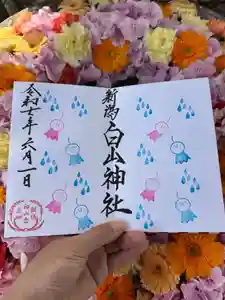 新潟白山神社
令和七年六月一日